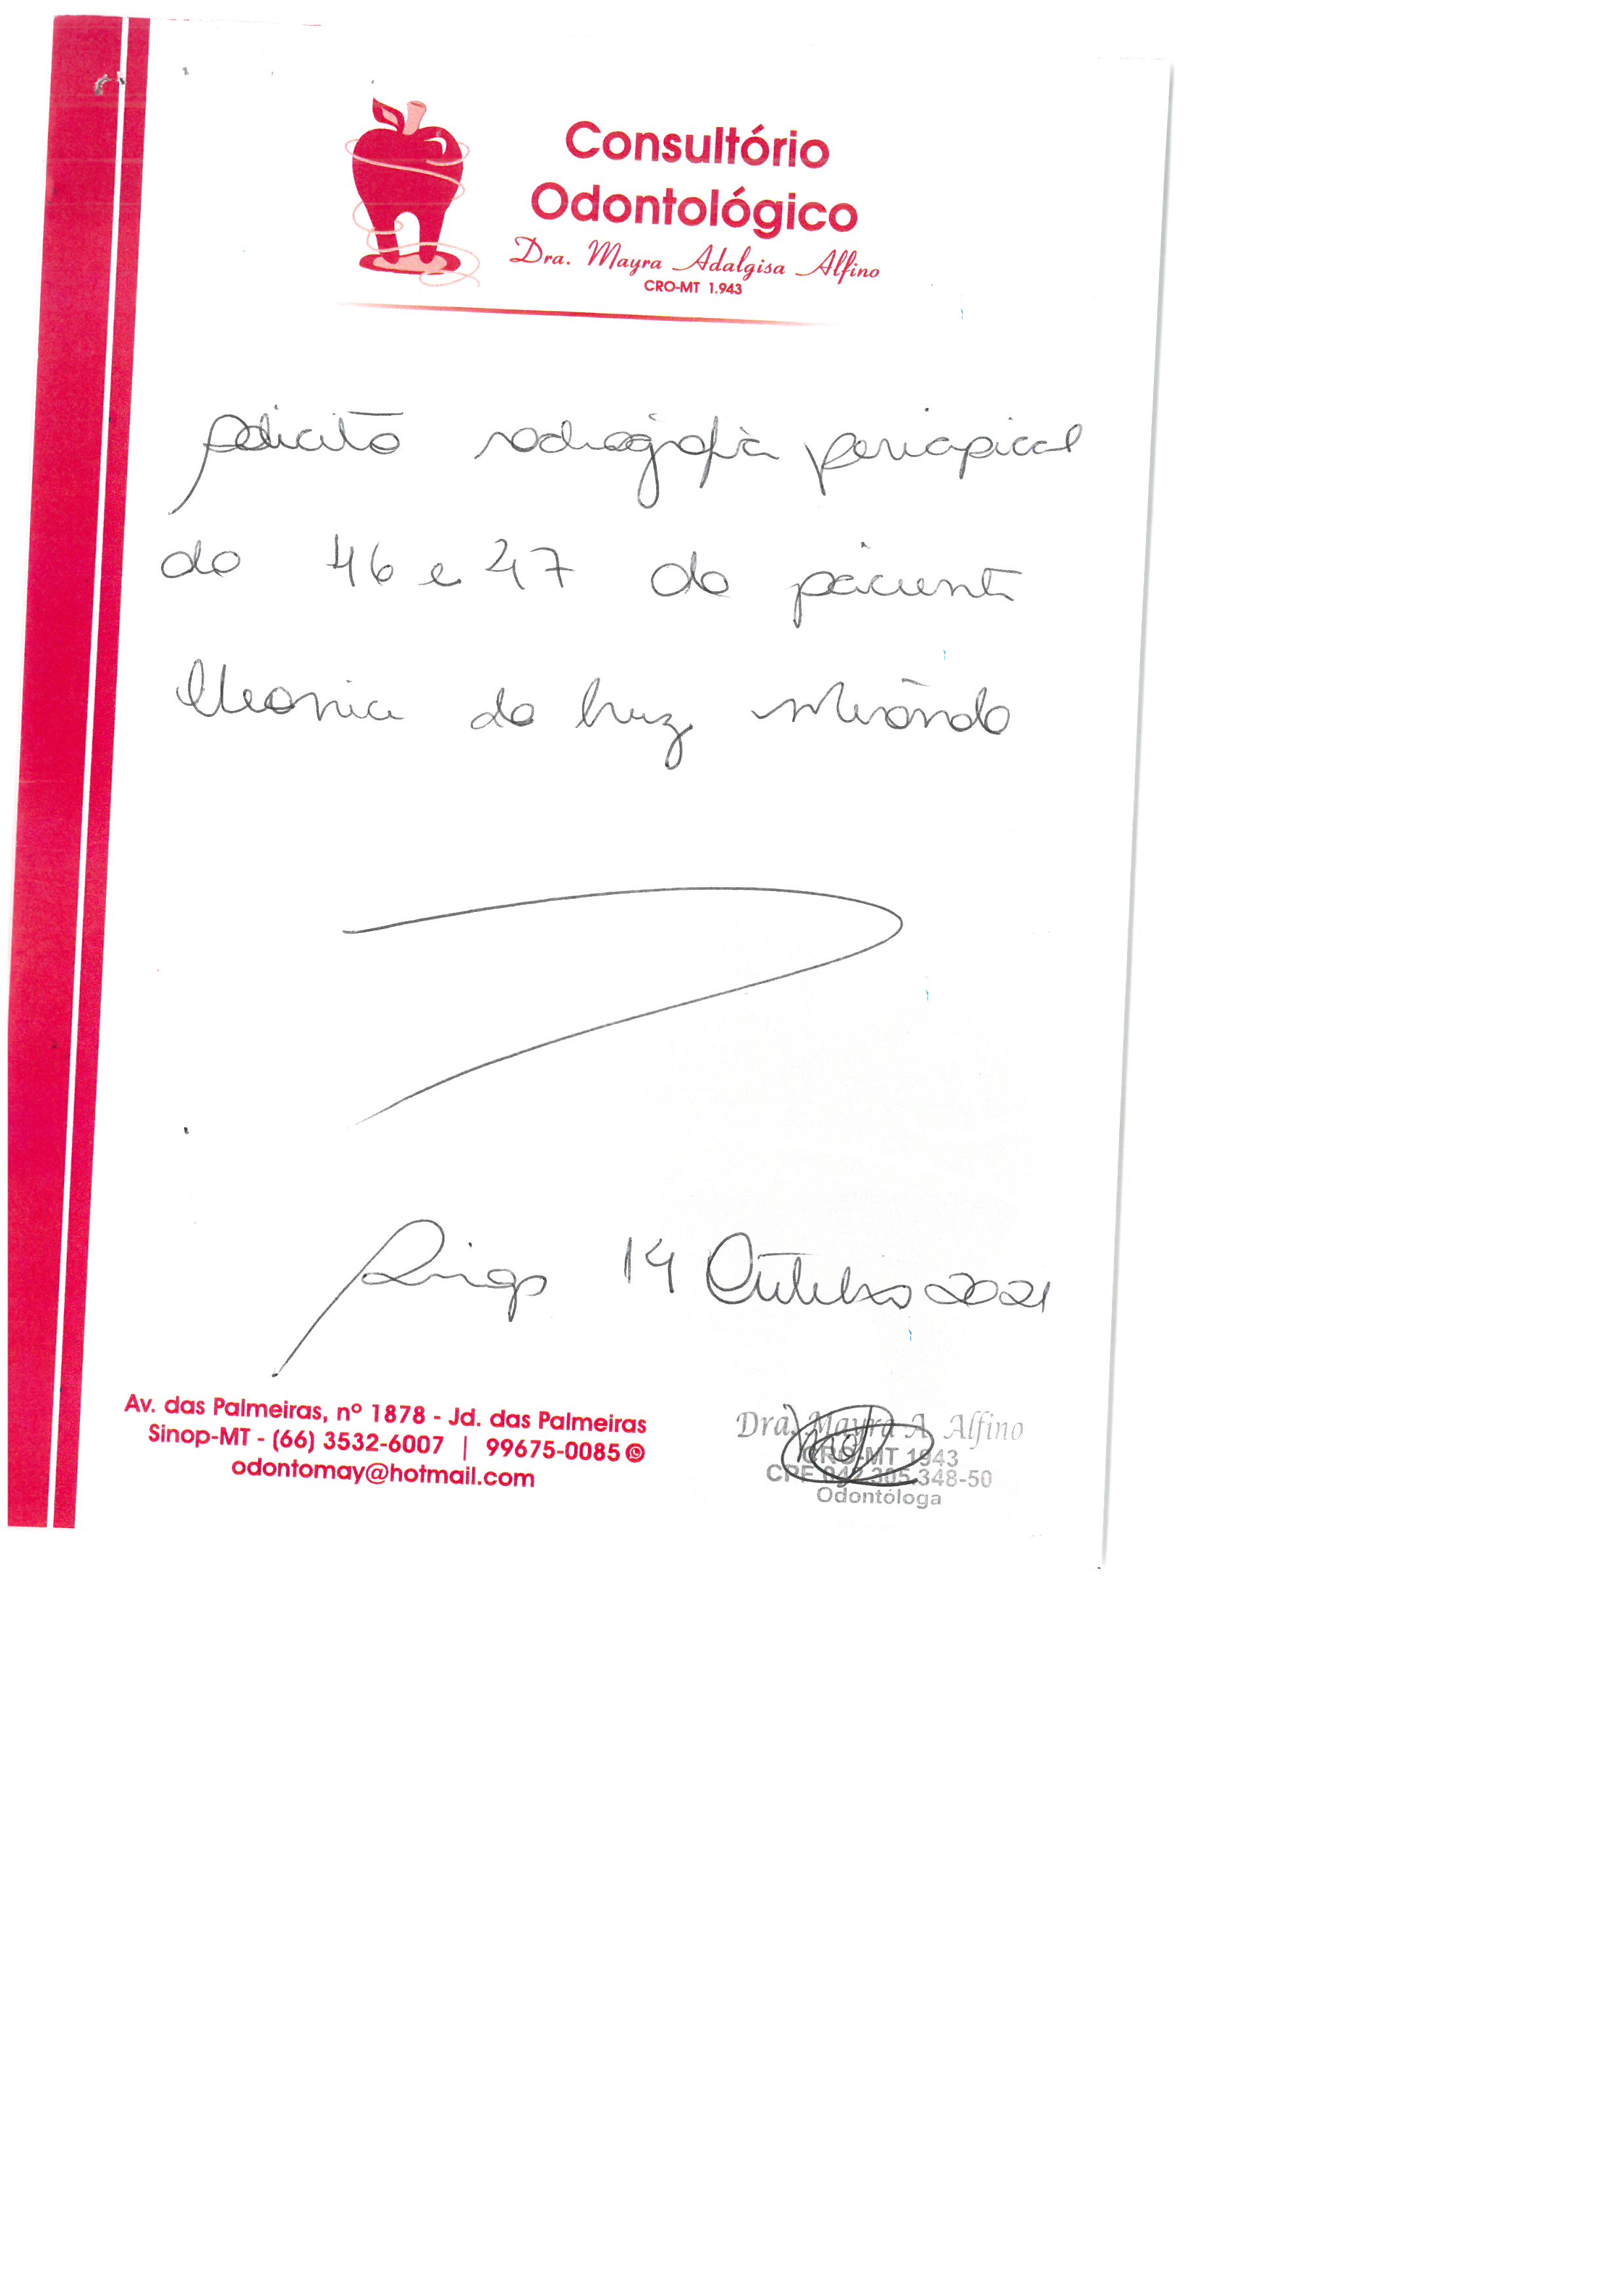 Consultório
Odontológico
Dra. Mayra Adalgisa Alfino
CRO-MT 1.943
Solicito radiografia periapical
do 46 e 47 da paciente
da Luz
Sinop 14 Outubro 2021
Av. das Palmeiras, nº 1878 - Jd. das Palmeiras
Sinop-MT - (66) 3532-6007 | 99675-0085
odontomay@hotmail.com
Dra. Mayra A. Alfino
CRO-MT 1943
CPF 348-50
Odontóloga